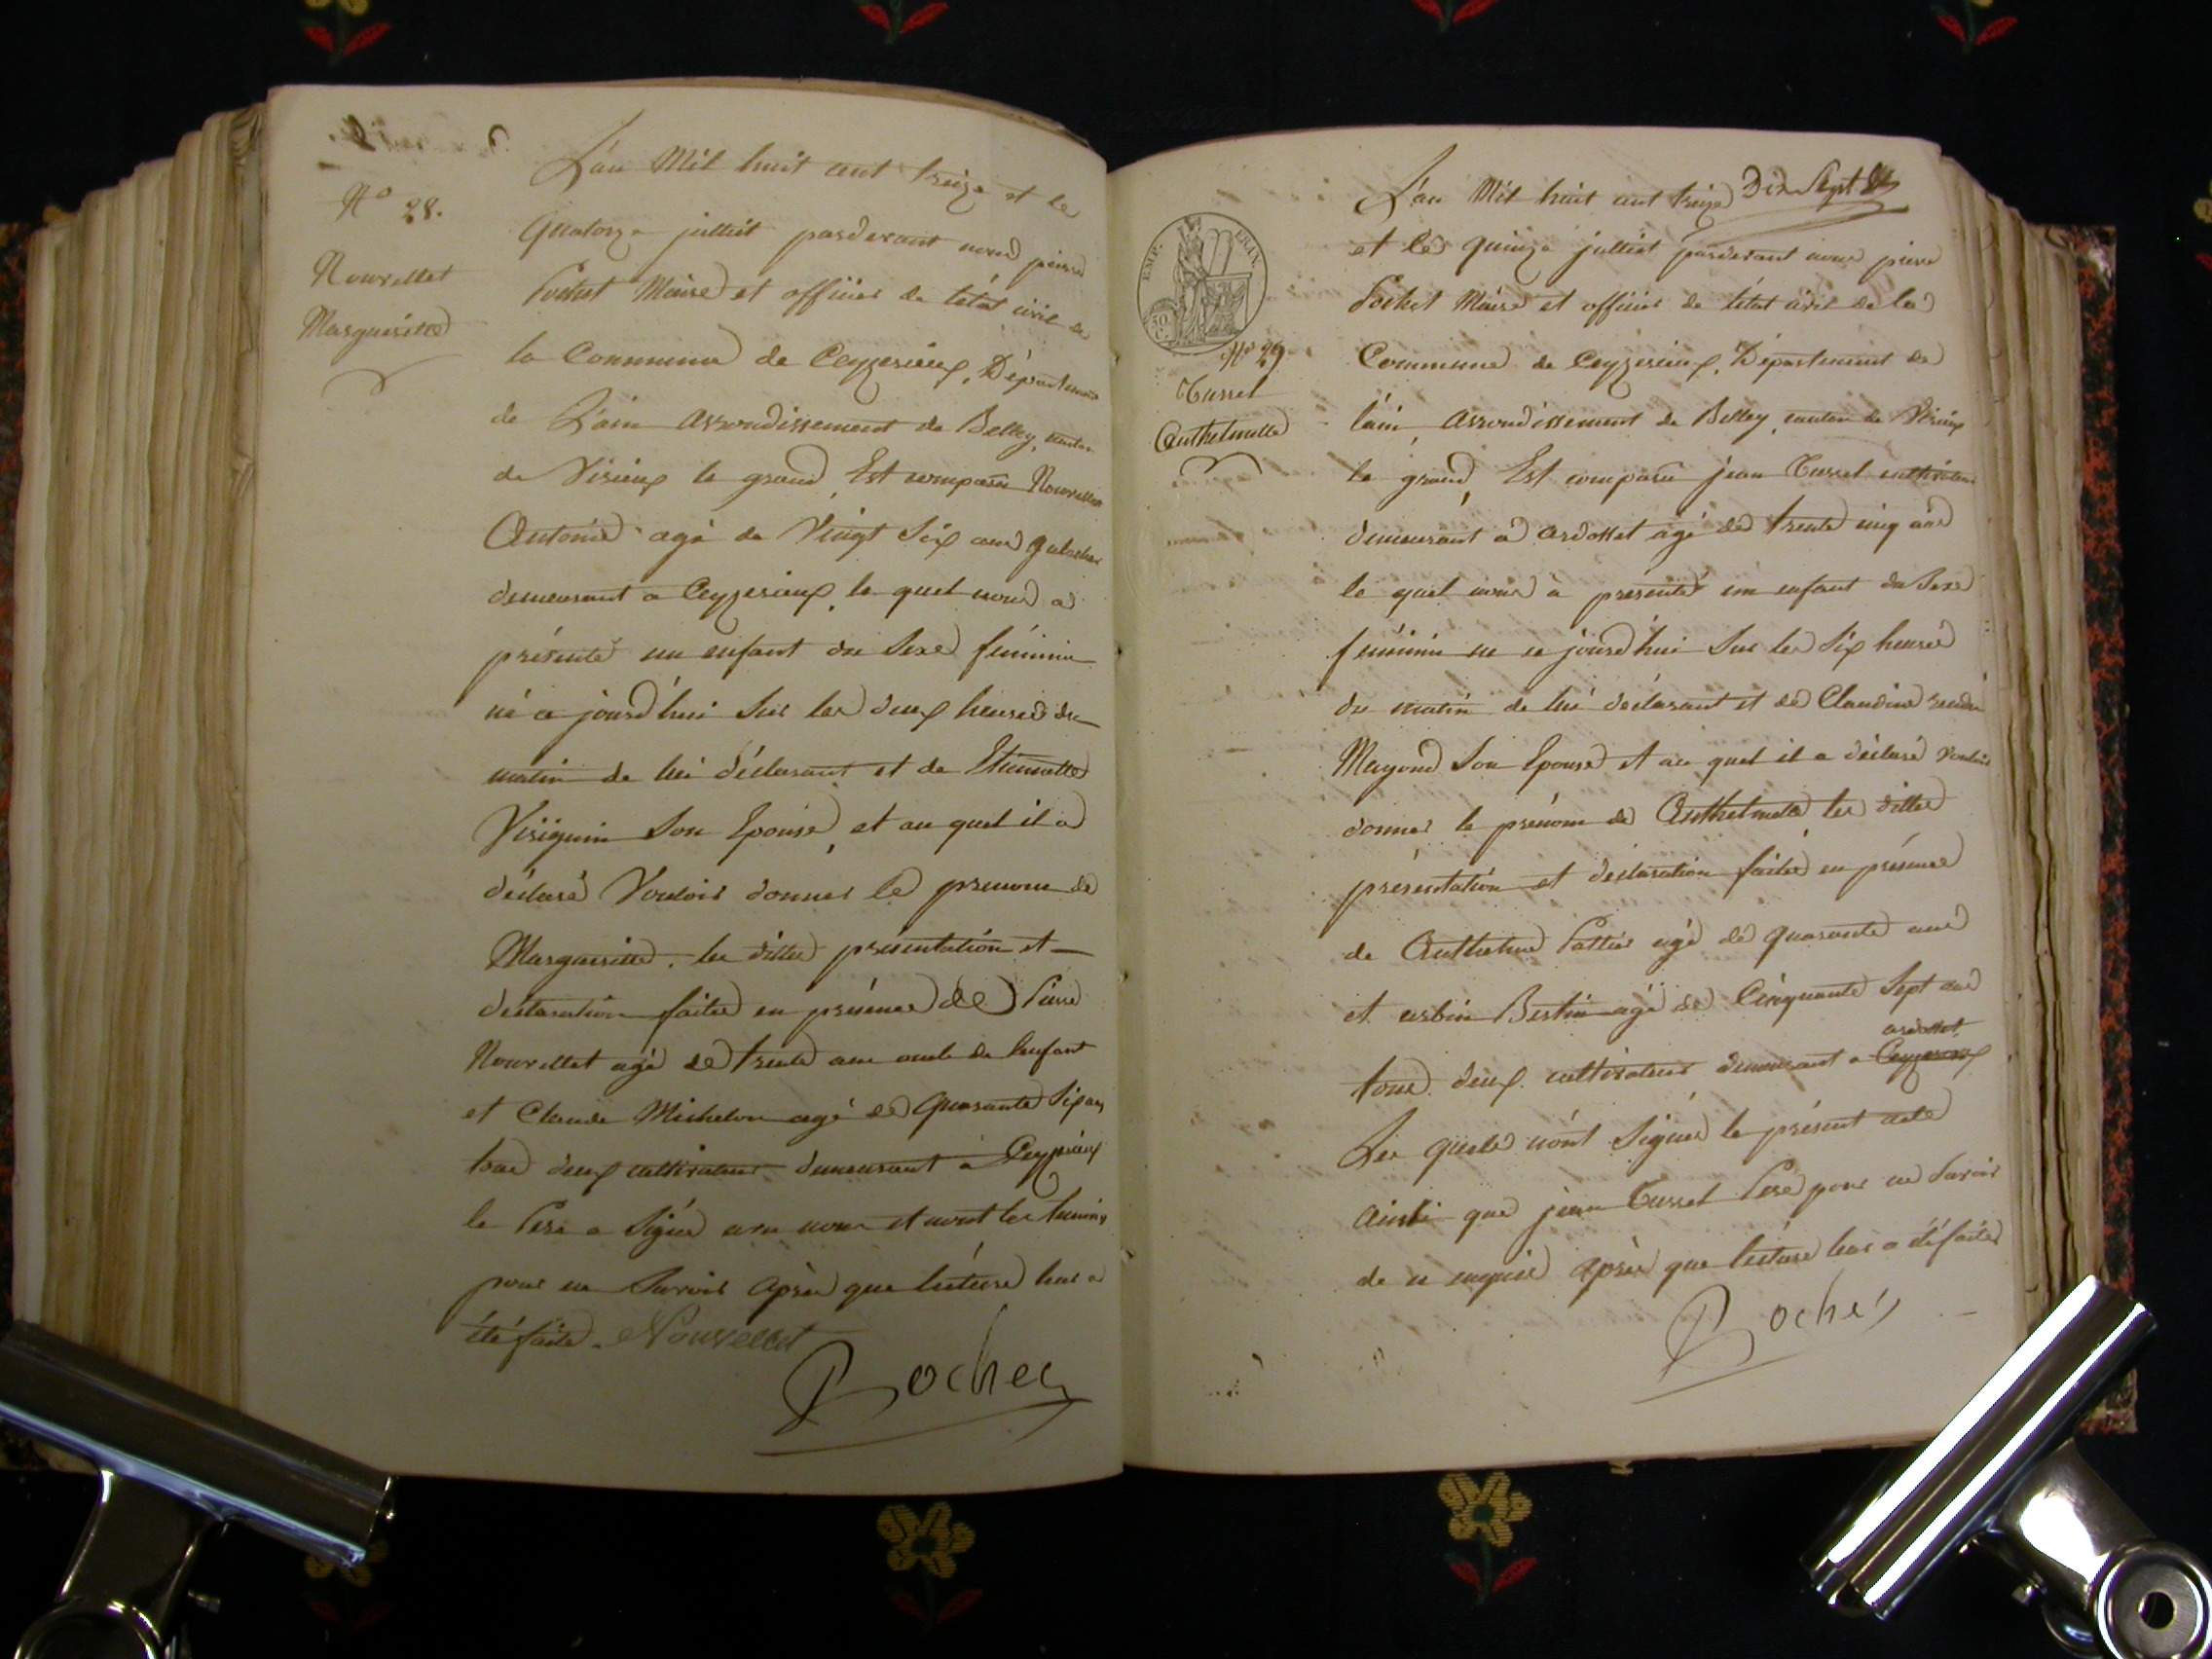 N° 28.
Nouvellet
Margueritte
L'an Mil huit cent treize et le
Quatorze julliet pardevant nous pierre
Pochet Maire et officier de l'état civil de
la Commune de Ceyzerieux, Département
de L'ain arrondissement de Belley, canton
de Virieux le grand, Est comparu Nouvellet
Antoine agé de Vingt Six ans
demeurant a Ceyzerieux, le quel nous a
présenté un enfant du Sexe féminin
né ce jourd'hui Sur les deux heures du
matin de lui déclarant et de Etiennette
Viriguin Son Epouse, et au quel il a
déclaré Vouloir donner le prenom de
Margueritte. les dittes présentation et
déclaration faites en présence de Pierre
Nouvellet agé de trente ans oncle de l'enfant
et Claude Michelon agé de Quarante Six ans
tous deux cultivateurs demeurant à Ceyzerieux
le Pere a Signé avec nous et non les témoins
pour ne Savoir après que lecture leur a
été faite. Nouvellet
Pochet
Dix Sept
EMP. FRAN.
50 C.
N° 29.
Tussel
Anthelmette
L'an Mil huit cent treize
et le quinze julliet pardevant nous pierre
Pochet Maire et officier de l'état civil de la
Commune de Ceyzerieux, Département de
l'ain, arrondissement de Belley, canton de Virieux
le grand, Est comparu jean Tussel cultivateur
demeurant à ardosset agé de trente cinq ans
le quel nous à présenté un enfant du Sexe
féminin né ce jourd'hui Sur les Six heures
du matin de lui déclarant et de Claudine
Mayond Son Epouse et au quel il a déclaré vouloir
donner le prénom de Anthelmette les dittes
présentation et déclaration faites en présence
de Anthelme Pattier agé de quarante ans
et Bertin agé de Cinquante Sept ans
ardosset
tous deux cultivateurs demeurant a Ceyzerieux
Les quels n'ont Signés le présent acte
Ainsi que jean Tussel Pere pour ne Savoir
de ce enquis après que lecture leur a été faite
Pochet